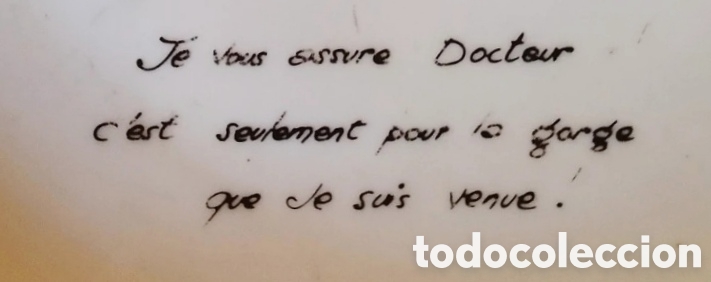 Je vous assure Docteur
c'est seulement pour la gorge
que Je suis venue.
todocoleccion